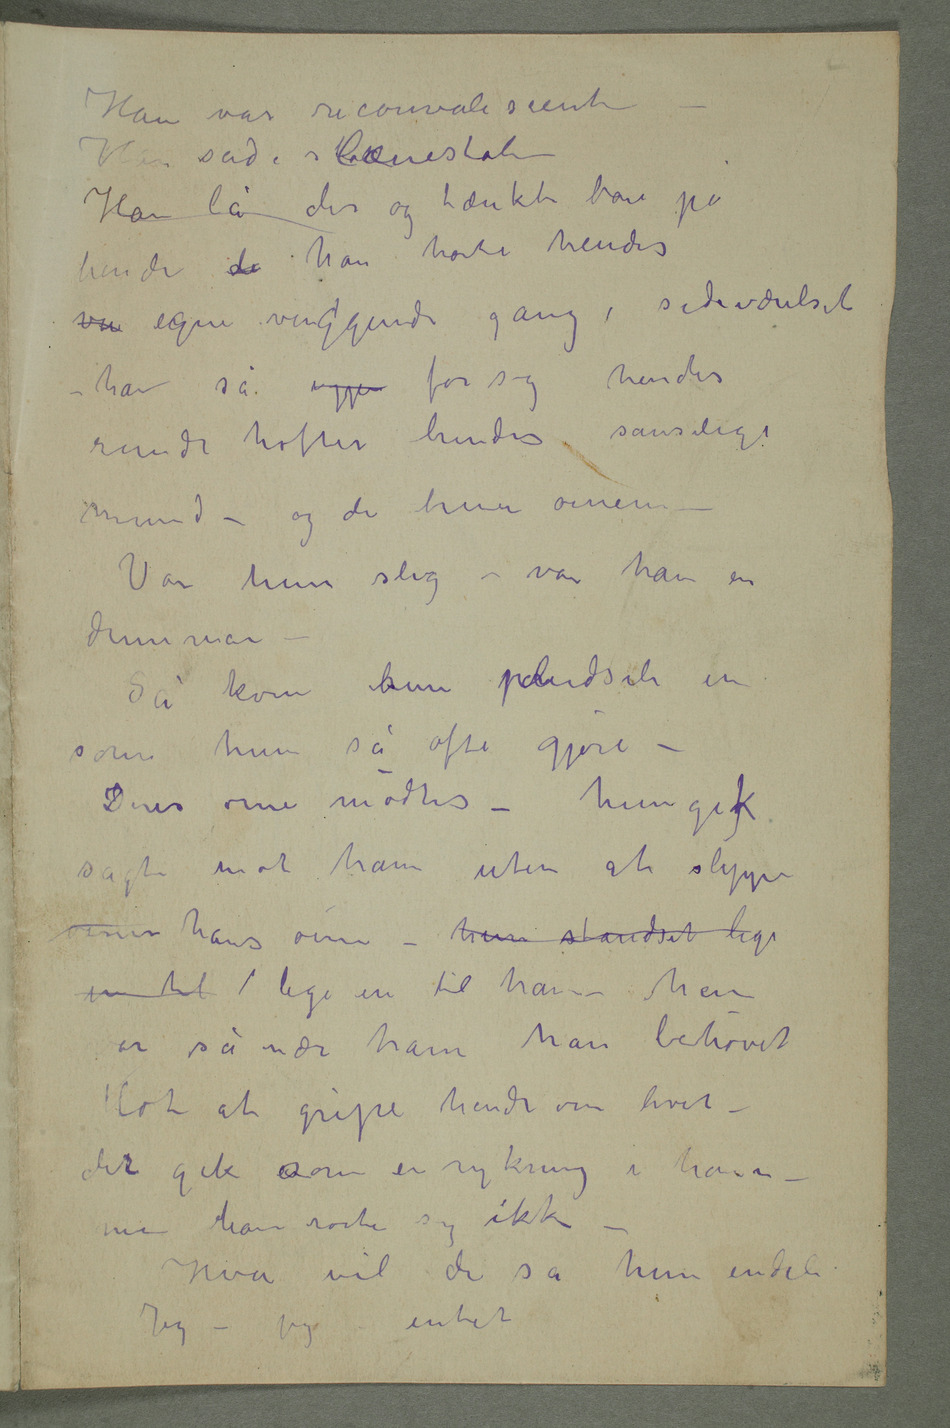 Han var reconvalescent –
Han sad i slænestolen
Han lå der og tænkte bare på
hende de han hørte hendes
var egne vuggende gang i sideværelset
– han så igjen for sig hendes
runde hofter hendes sanselige
mund – og de brune øinene –
Var hun slig – var han en
drømmer –
Så kom hun pludselig in
som hun så ofte gjøre –
Deres øine mødtes – hun gik
sagte mot ham uten at slippe
øinene hans øine – hun standset lige
in til / lige in til ham – hun
er så nær ham han behøvet
blot at gripe hende om livet –
det gik som en rykning i ham –
men han rørte sig ikke –
Hva vil De sa hun endeli
Jeg – jeg – intet